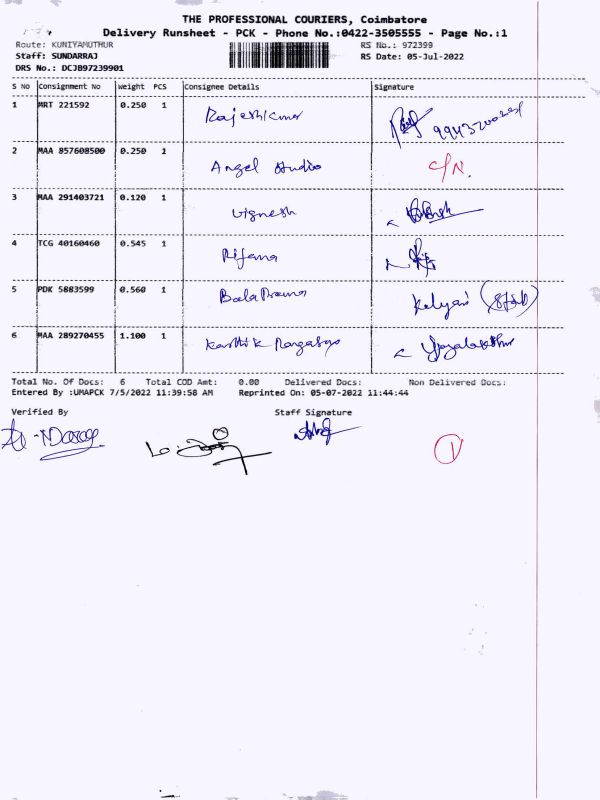 THE PROFESSIONAL COURIERS, Coimbatore
Delivery Runsheet - PCK - Phone No.:0422-3505555 - Page No.:1
Route: KUNIYAMUTHUR RS No.: 972399
Staff: SUNDARRAJ RS Date: 05-Jul-2022
DRS No.: DCJB97239901
S No Consignment No Weight PCS Consignee Details Signature
1 MRT 221592 0.250 1 Rajeshkumar
2 MAA 857608500 0.250 1 Angel studio C/N.
3 MAA 291403721 0.120 1 Vignesh
4 TCG 40160460 0.545 1 Rifana
5 PDK 5883599 0.560 1 Kalyani
6 MAA 289270455 1.100 1 Karthik
Total No. Of Docs: 6 Total COD Amt: 0.00 Delivered Docs: Non Delivered Docs:
Entered By :UMAPCK 7/5/2022 11:39:58 AM Reprinted On: 05-07-2022 11:44:44
Verified By Staff Signature
1